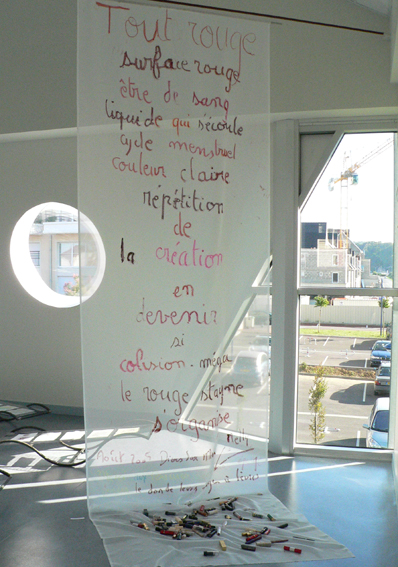 Tout rouge
surface rouge
être de sang
liquide qui s'écoule
cycle menstruel
couleur claire
répétition
de
la création
en
devenir
si
colusion. méga
le rouge stagne
s'organise